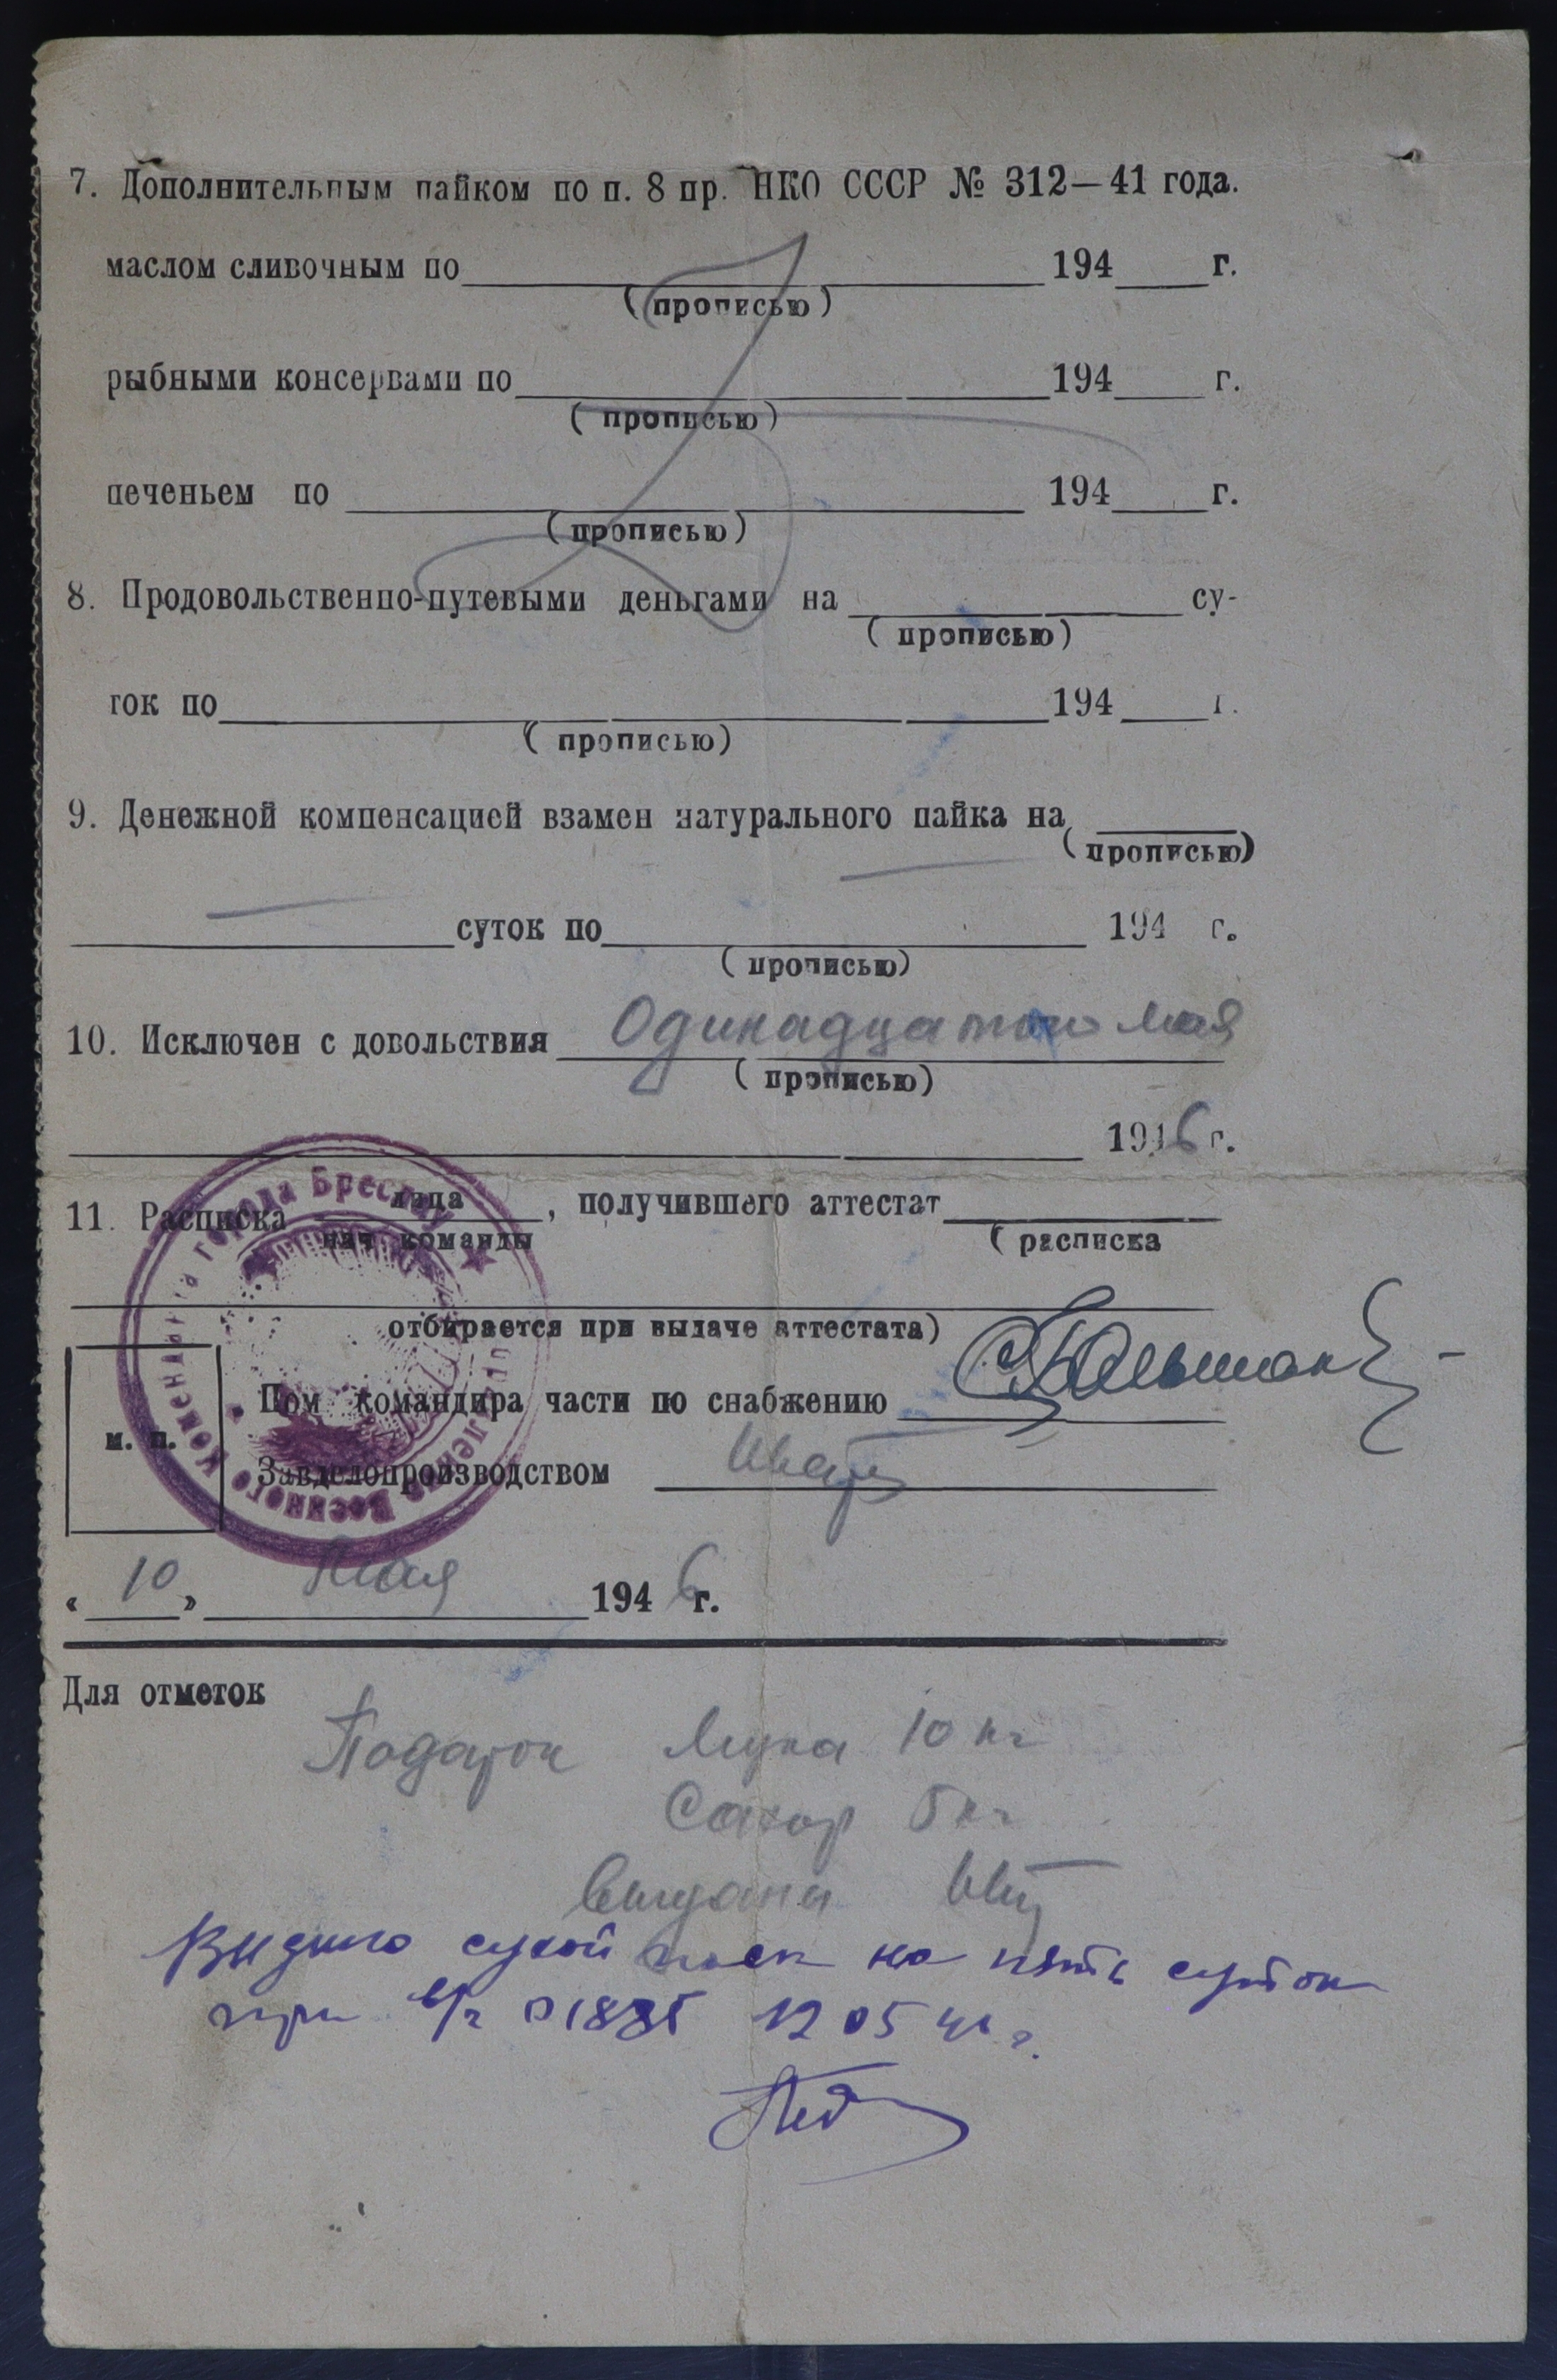 7. Дополнительным пайком по п. 8 пр. НКО СССР № 312—41 года.
маслом сливочным по 194 г.
(прописью)
рыбными консервами по 194 г.
(прописью)
печеньем по 194 г.
(прописью)
8. Продовольственно-путевыми деньгами на су-
(прописью)
ток по 194 г.
(прописью)
9. Денежной компенсацией взамен натурального пайка на
(прописью)
суток по 194 г.
(прописью)
10. Исключен с довольствия Одинадцатого мая
(прописью)
1946 г.
11. Расписка лица, получившего аттестат
нач команды (расписка
отбирается при выдаче аттестата)
Пом командира части по снабжению
м. п.
Завделопроизводством
Управление Военного Коменданта города Бреслау
« 10 » мая 1946 г.
Для отметок
Подарок Мука 10 кг
Сахар 5 кг
Выданы
Выдано сухой паек на пять суток
при в/ч 01885 12 05 46 г.